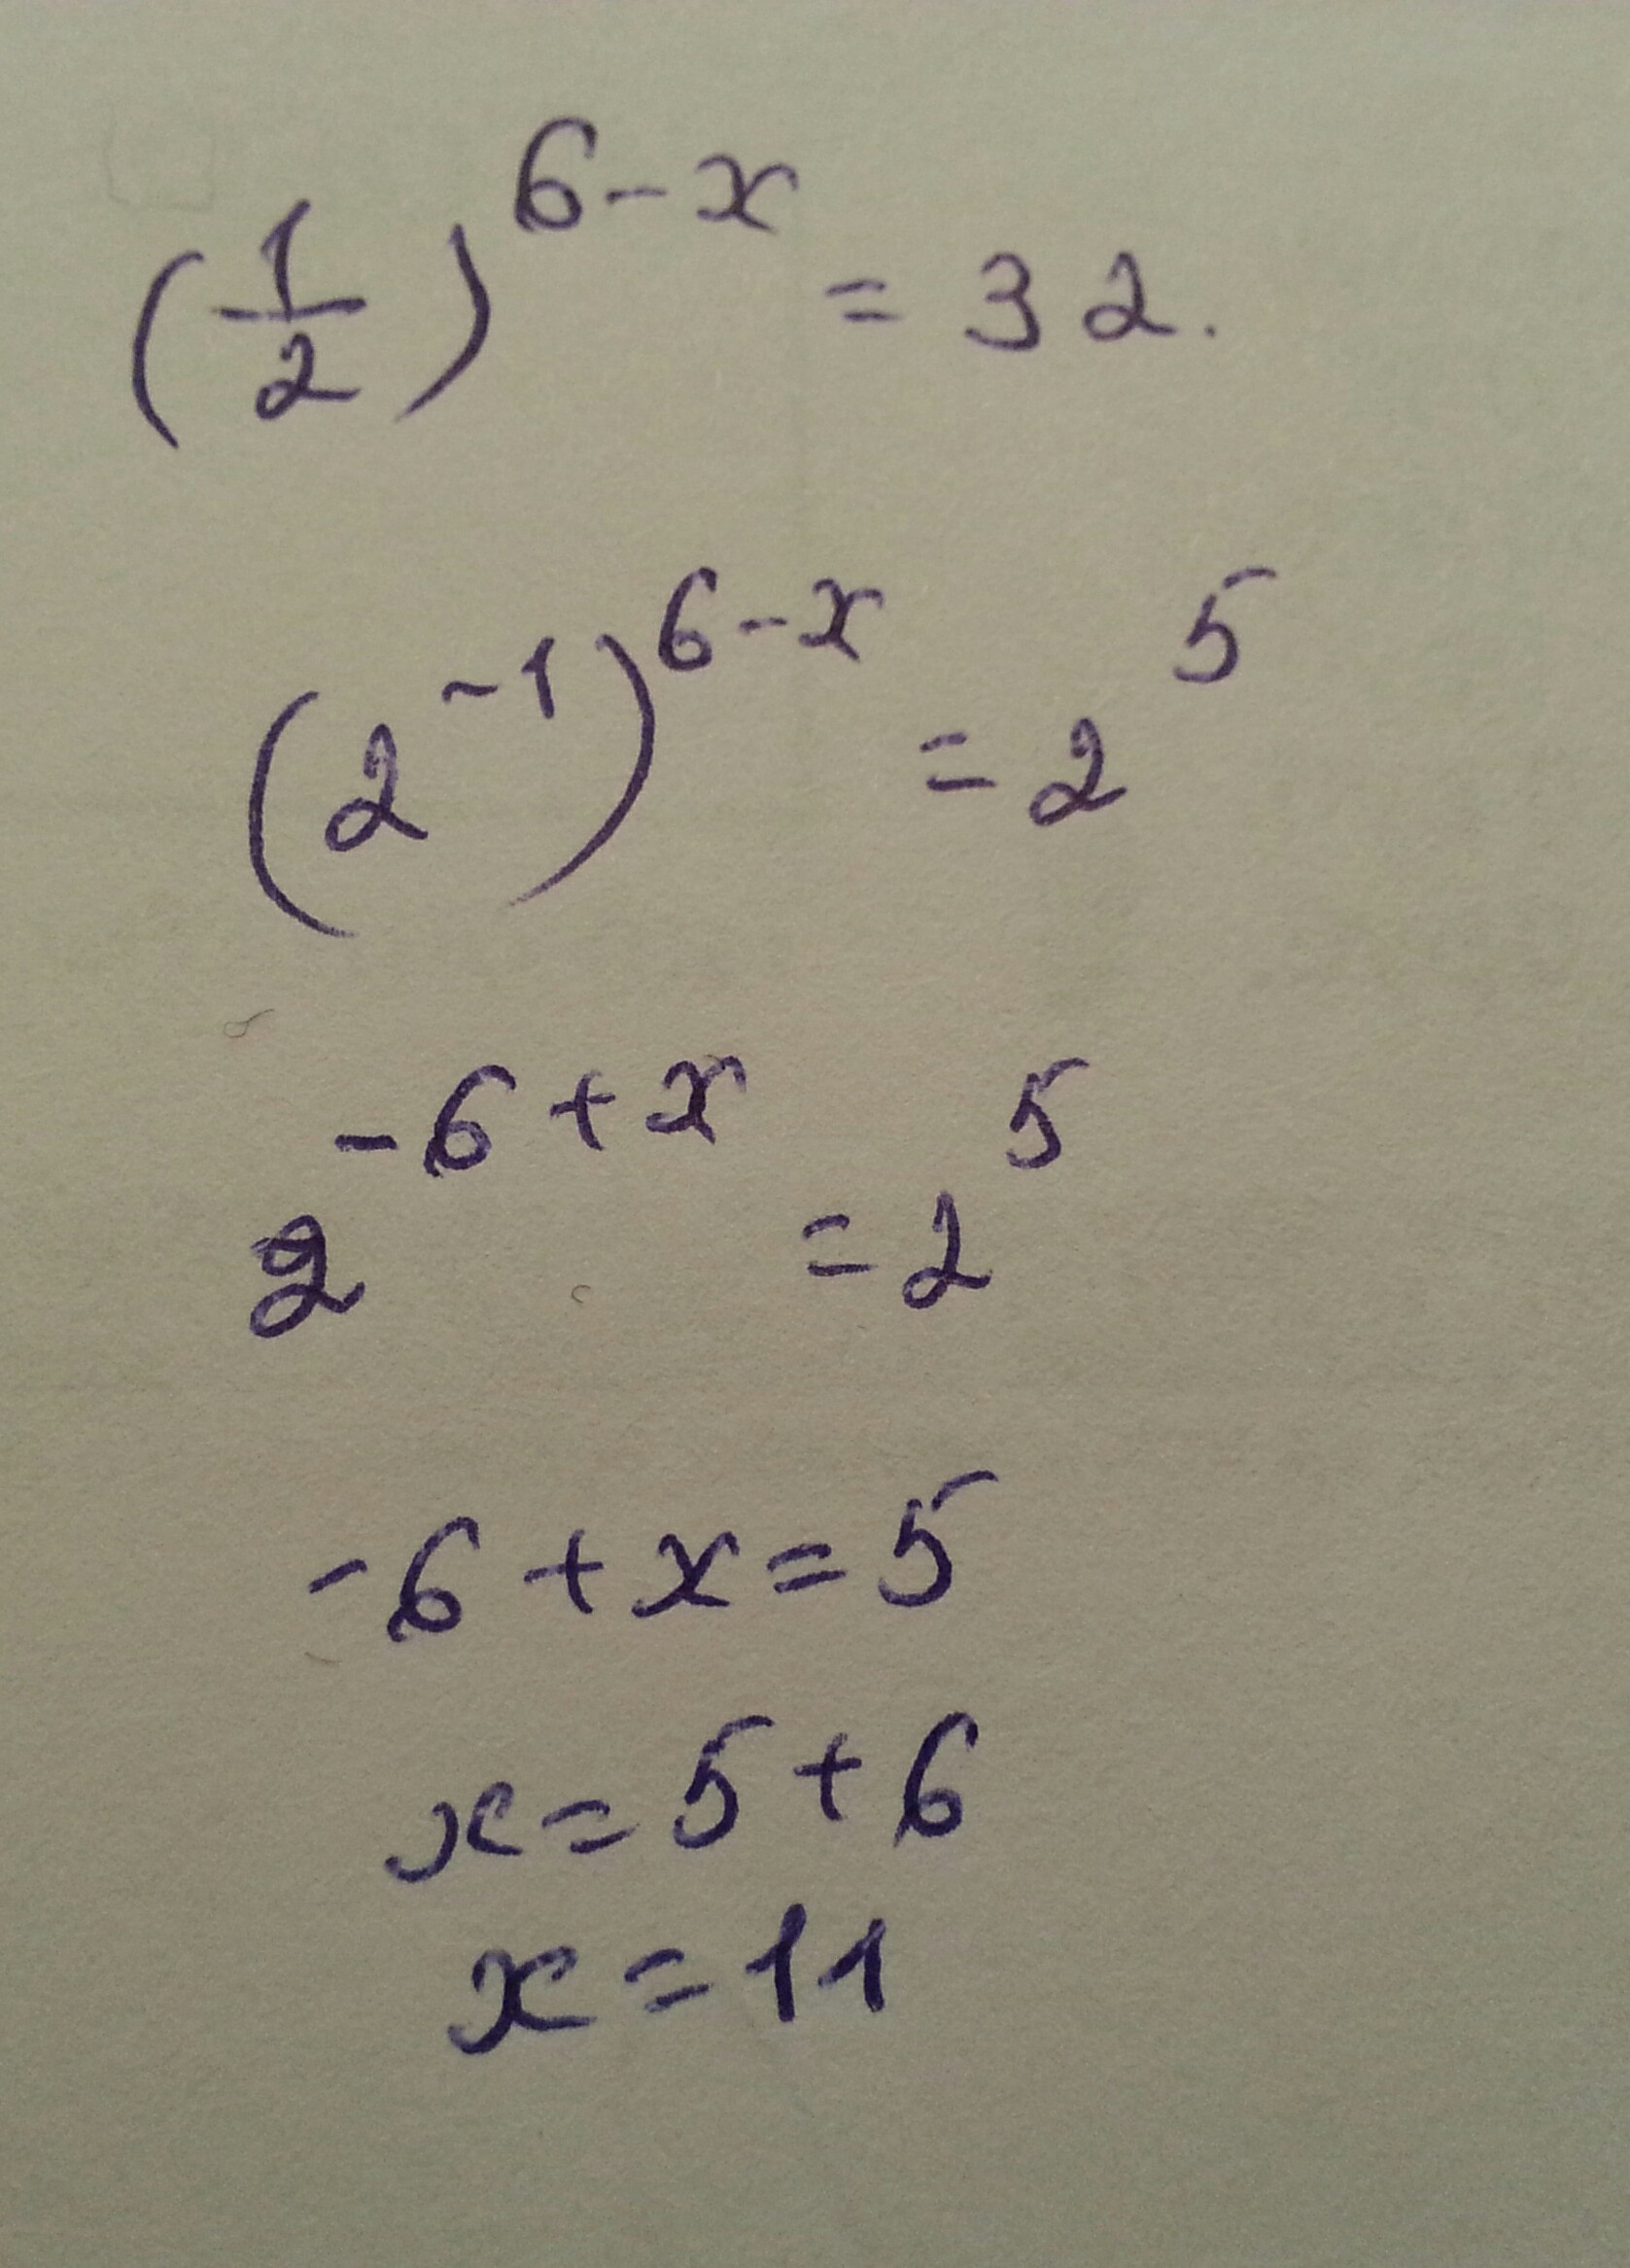 (1/2)^(6-x) = 32.
(2^-1)^(6-x) = 2^5
2^(-6+x) = 2^5
-6+x=5
x=5+6
x=11